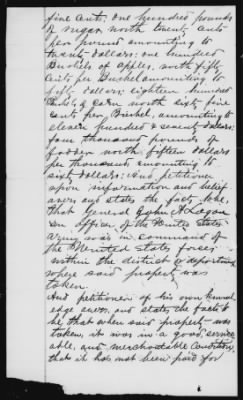 five cents; one hundred pounds
of sugar worth twenty cents
per pound amounting to
twenty dollars: one hundred
Bushels of apples, worth fifty
cents per Bushel amounting to
fifty dollars; eighteen hundred
Bushels of corn worth sixty five
cents per Bushel, amounting to
eleven hundred & seventy dollars:
four thousand pounds of
fodder worth fifteen dollars
per thousand amounting to
sixty dollars: And petitioner
upon information and belief
avers and states the facts to be,
that General John A. Logan
an officer of the United States
army was in command of
the United States forces
within the district or department
where said property was
taken.
And petitioner of his own knowl
edge avers, and states the facts to
be that when said property was
taken, it was in a good, service
able, and merchantable condition,
that it has not been paid for